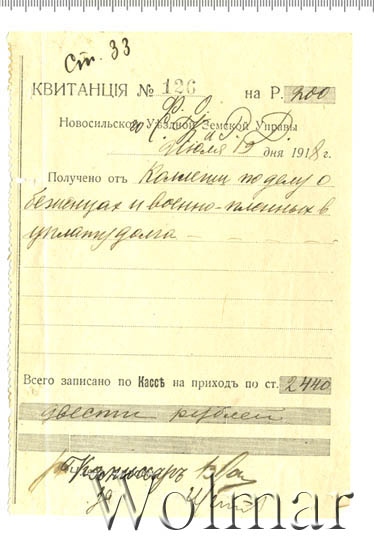 Ст. 33
КВИТАНЦІЯ № 126 на Р. 200
Ф. О.
Новосильской Уѣздной Земской Управы
Июля 19 дня 1918 г.
Получено отъ Коллегии по делу о
беженцах и военно-пленных в
уплату долга
Всего записано по Кассѣ на приходъ по ст. 2440
двести рублей
Комиссаръ
Wolmar